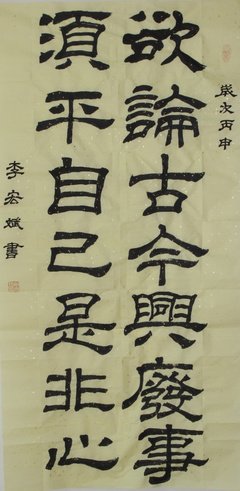 歲次丙申
欲論古今興廢事
須平自己是非心
李宏斌書